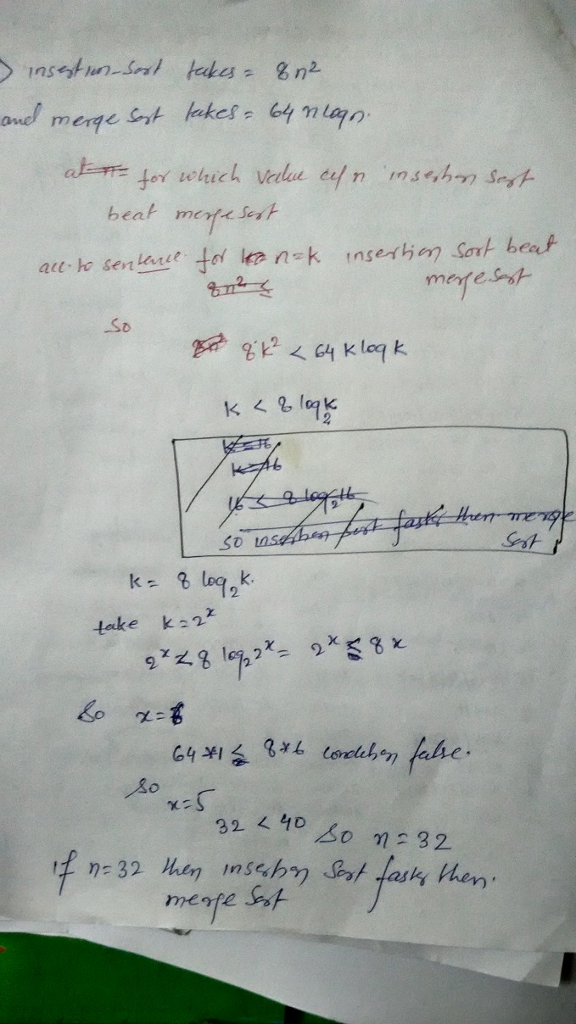 insertion-sort takes = 8n²
and merge sort takes = 64 n log n.
at n= for which value of n insertion sort
beat merge sort
acc. to sentence for n=k insertion sort beat
merge sort
8n² <
so
8k² < 64 k log k
k < 8 log₂k
k=16
k=16
16 < 8 log₂16
so insertion sort faster then merge
sort
k = 8 log₂k.
take k=2ˣ
2ˣ < 8 log₂2ˣ = 2ˣ ≤ 8x
So x=6
64*1 ≤ 8*6 condition false.
So
x=5
32 < 40 So n=32
if n=32 then insertion sort faster then.
merge sort